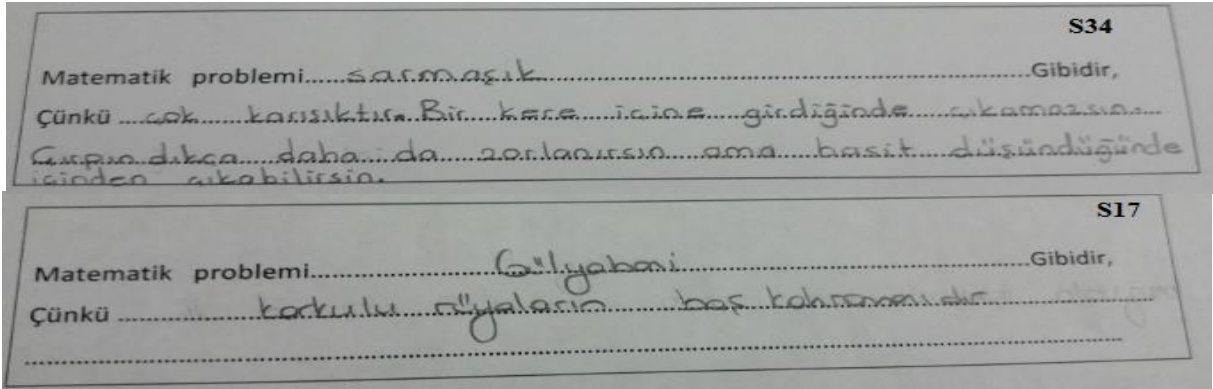 S34
Matematik problemi......sarmaşık......Gibidir,
Çünkü ....çok......karışıktır. Bir...kere...içine...girdiğinde...çıkamazsın....
Çırpındıkça....daha...da....zorlanırsın....ama....basit...düşündüğünde
içinden çıkabilirsin.
S17
Matematik problemi......Gülyabani......Gibidir,
Çünkü ......korkulu rüyaların......baş kahramanıdır......